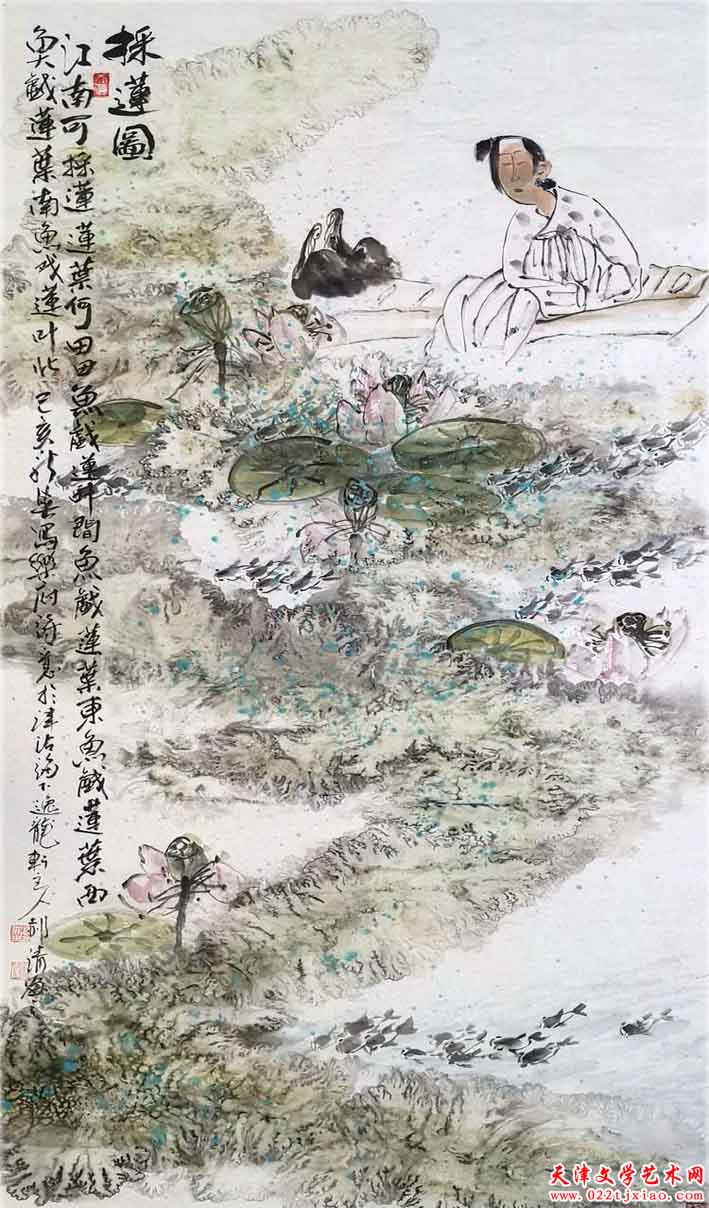 採蓮圖
江南可採蓮蓮葉何田田魚戲蓮葉間魚戲蓮葉東魚戲蓮葉西
魚戲蓮葉南魚戏蓮叶北己亥秋 写樂府诗意於津沽 逸龍軒主人郝清
天津文学艺术网
www.022tjxiao.com